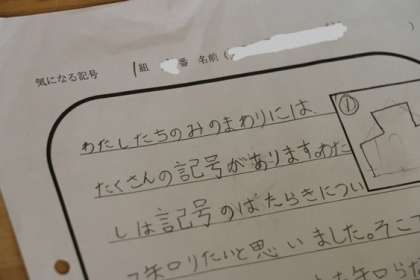 気になる記号 1組 番 名前(
)
①
わたしたちのみのまわりには
たくさんの記号があります。わた
しは記号のはたらきについ
て知りたいと思いました。そこ
知らた